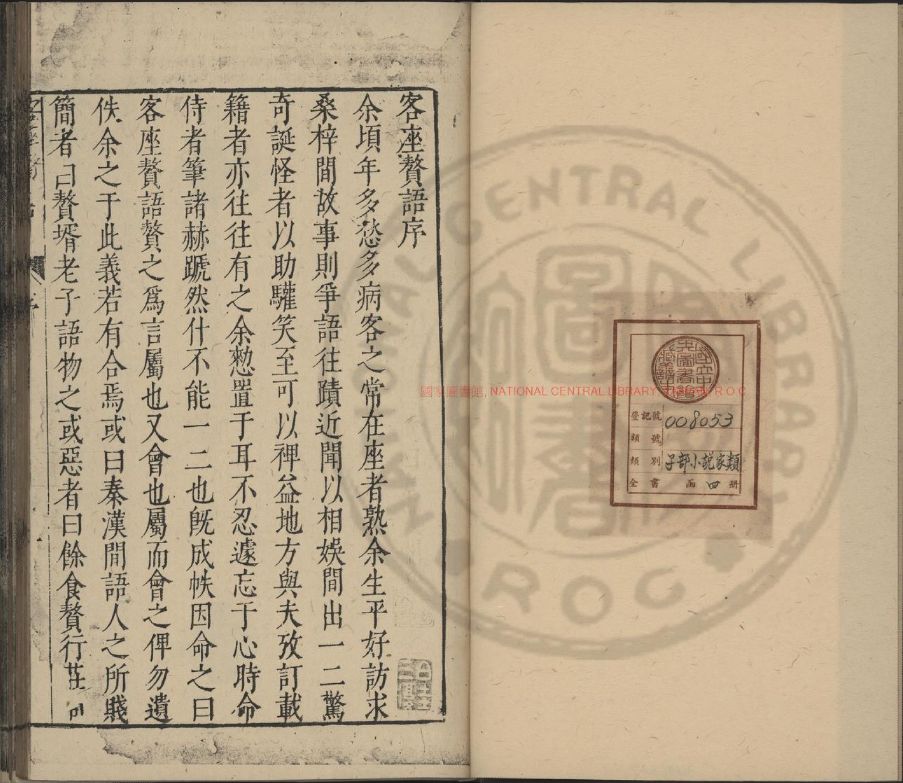 客座贅語序
余頃年多愁多病客之常在座者熟余生平好訪求
桑梓間故事則爭語往蹟近聞以相娛間出一二驚
奇誕怪者以助驩笑至可以裨益地方與夫攷訂載
籍者亦往往有之余愸置于耳不忍遽忘于心時命
侍者筆諸赫蹏然什不能一二也旣成帙因命之曰
客座贅語贅之爲言屬也又會也屬而會之俾勿遺
佚余之于此義若有合焉或曰秦漢間語人之所賤
簡者曰贅壻老子語物之或惡者曰餘食贅行莊
國家圖書館, NATIONAL CENTRAL LIBRARY R O C
NATIONAL CENTRAL LIBRARY
ROC
圖書
登記號 008053
類號
類別 子部小說家類
全書 函 四 册